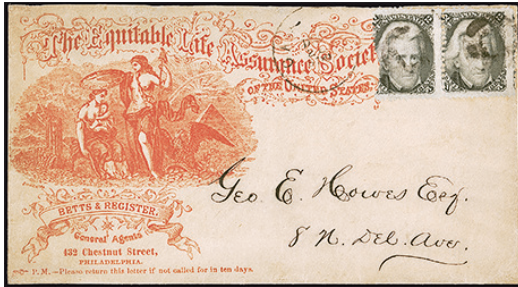 The Equitable Life
Assurance Society
OF THE UNITED STATES.
BETTS & REGISTER.
General Agents
432 Chestnut Street,
PHILADELPHIA.
P. M.—Please return this letter if not called for in ten days.
Geo. E. Howes Esq.
8 N. Del. Aver.